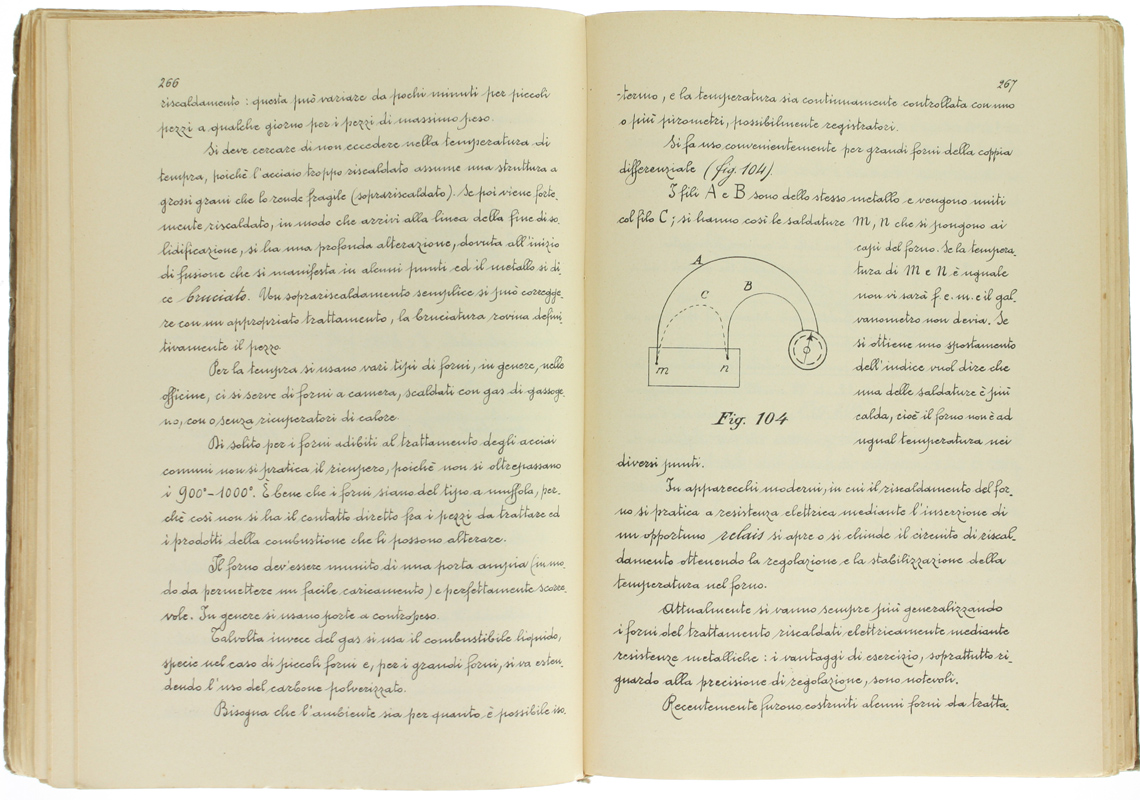 266
riscaldamento : questa può variare da pochi minuti per piccoli
pezzi a qualche giorno per i pezzi di massimo peso.
Si deve cercare di non eccedere nella temperatura di
tempra, poichè l'acciaio troppo riscaldato assume una struttura a
grossi grani che lo rende fragile (soprariscaldato). Se poi viene forte-
mente riscaldato, in modo che arrivi alla linea della fine di so-
lidificazione, si ha una profonda alterazione, dovuta all'inizio
di fusione che si manifesta in alcuni punti ed il metallo si di-
ce bruciato. Un soprariscaldamento semplice si può corregge-
re con un appropriato trattamento, la bruciatura rovina defini-
tivamente il pezzo
Per la tempra si usano vari tipi di forni, in genere, nelle
officine, ci si serve di forni a camera, scaldati con gas di gassoge-
no, con o senza ricuperatori di calore.
Di solito per i forni adibiti al trattamento degli acciai
comuni non si pratica il ricupero, poichè non si oltrepassano
i 900°-1000°. È bene che i forni siano del tipo a muffola, per-
chè così non si ha il contatto diretto fra i pezzi da trattare ed
i prodotti della combustione che li possono alterare.
Il forno dev'essere munito di una porta ampia (in mo-
do da permettere un facile caricamento) e perfettamente scorre-
vole. In genere si usano porte a contropeso.
Talvolta invece del gas si usa il combustibile liquido,
specie nel caso di piccoli forni e, per i grandi forni, si va esten-
dendo l'uso del carbone polverizzato.
Bisogna che l'ambiente sia per quanto è possibile iso-
267
-termo, e la temperatura sia continuamente controllata con uno
o più pirometri, possibilmente registratori.
Si fa uso convenientemente per grandi forni della coppia
differenziale (fig. 104).
I fili A e B sono dello stesso metallo e vengono uniti
col filo C; si hanno così le saldature M, N che si pongono ai
capi del forno. Se la tempera-
tura di M e N è uguale
non vi sarà f. e. m. e il gal-
vanometro non devia. Se
si ottiene uno spostamento
dell'indice vuol dire che
una delle saldature è più
calda, cioè il forno non è ad
ugual temperatura nei
A
B
C
m
n
Fig. 104
diversi punti.
In apparecchi moderni, in cui il riscaldamento del for-
no si pratica a resistenza elettrica mediante l'inserzione di
un opportuno relais si apre o si chiude il circuito di riscal-
damento ottenendo la regolazione e la stabilizzazione della
temperatura nel forno.
Attualmente si vanno sempre più generalizzando
i forni del trattamento riscaldati elettricamente mediante
resistenze metalliche : i vantaggi di esercizio, soprattutto ri-
guardo alla precisione di regolazione, sono notevoli.
Recentemente furono costruiti alcuni forni da tratta-